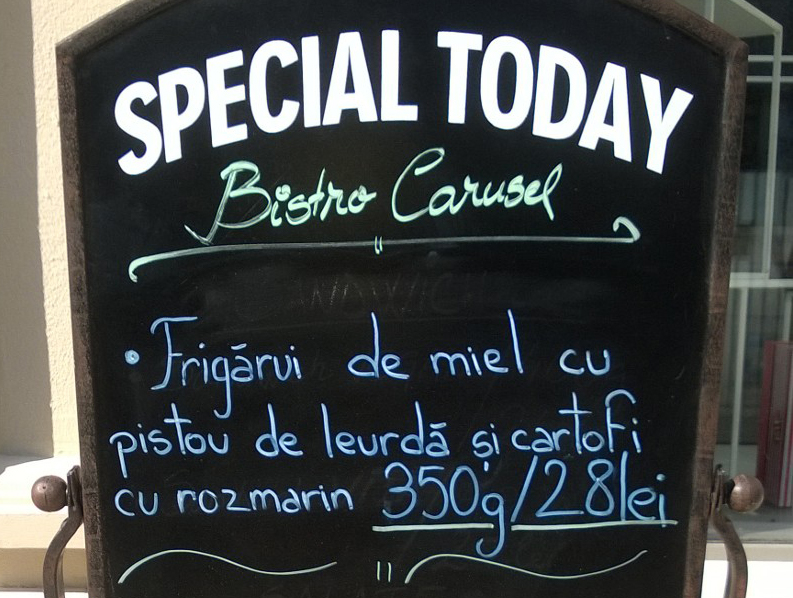 SPECIAL TODAY
Bistro Carusel
• Frigărui de miel cu
pistou de leurdă și cartofi
cu rozmarin 350g/28lei